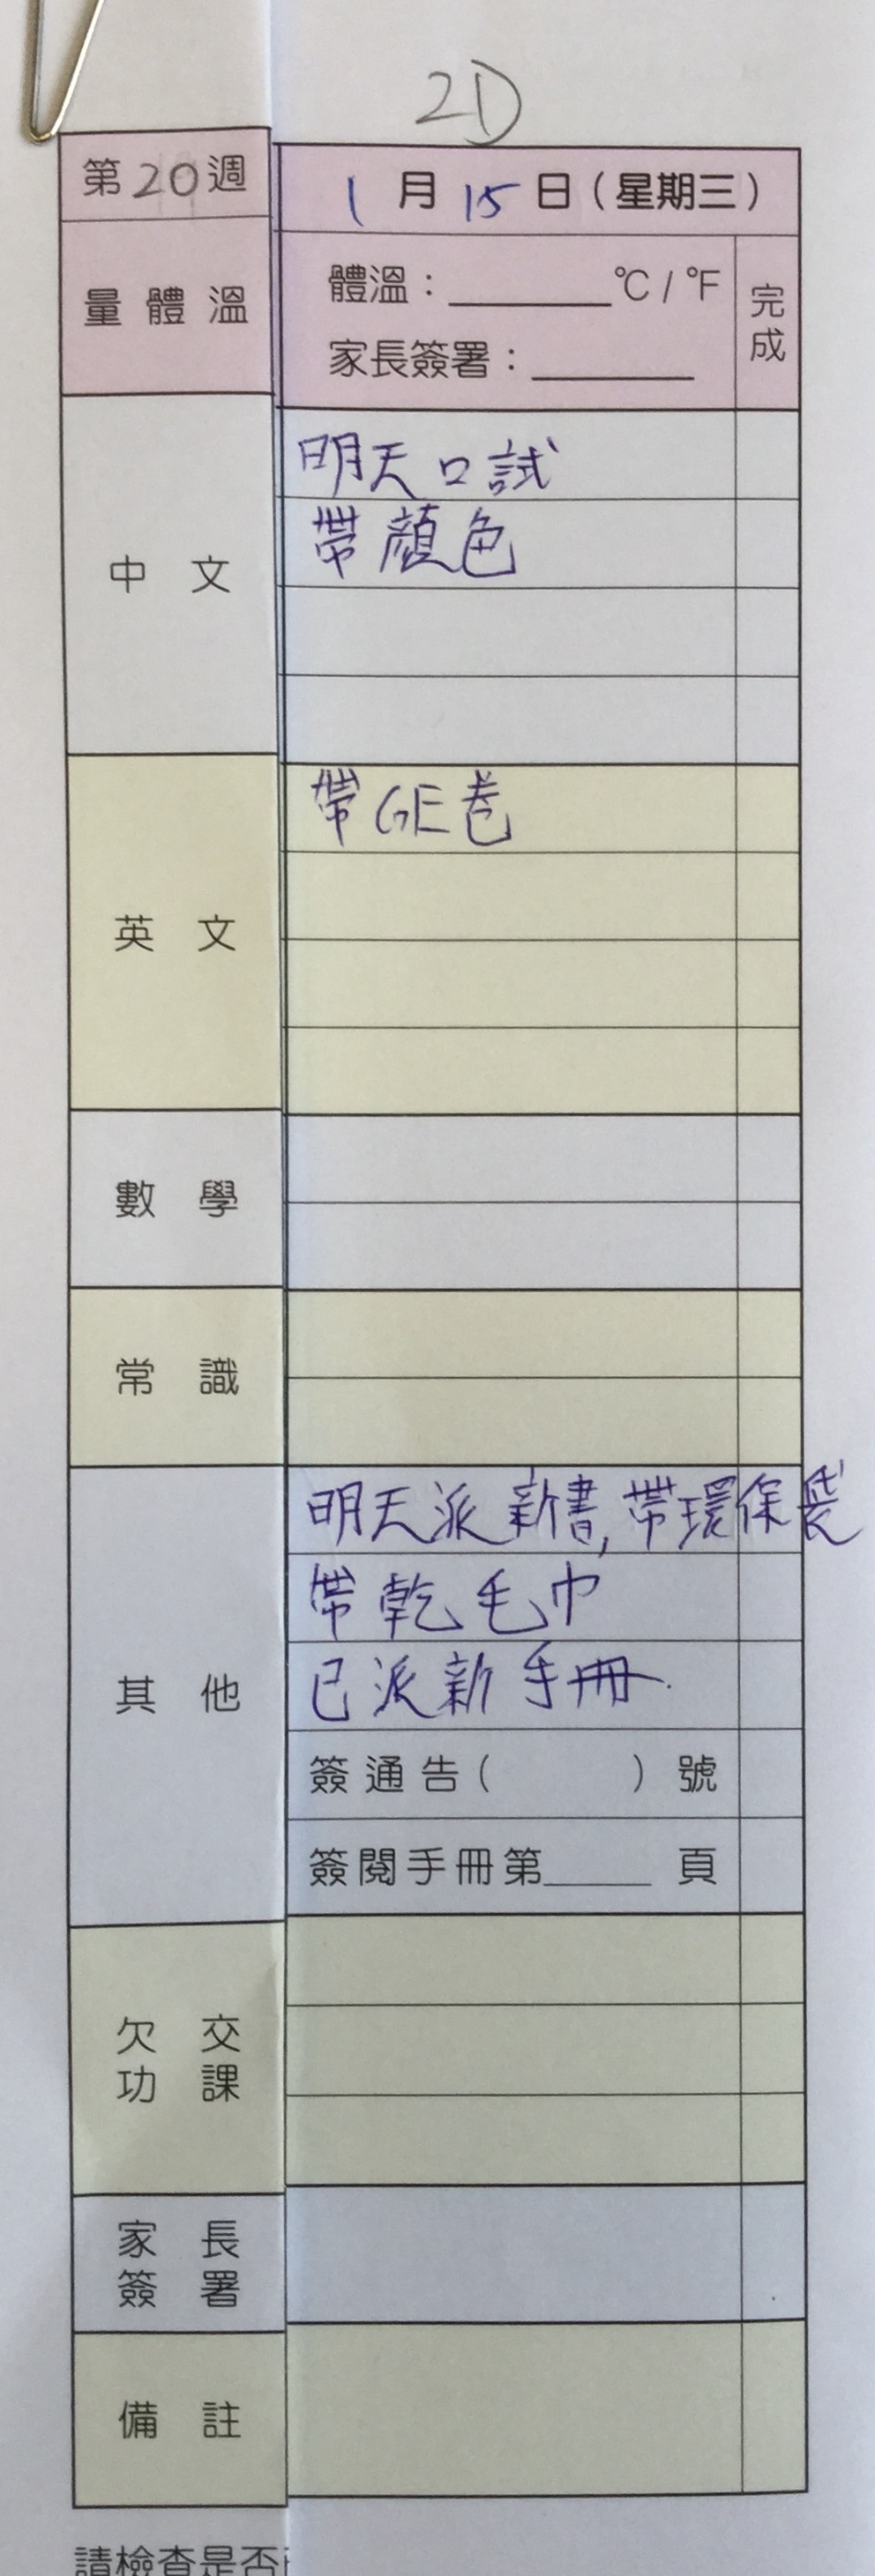 2D
第20週
1月15日(星期三)
量體溫
體溫：______℃/℉
家長簽署：______
完成
中文
明天口試
帶顏色
英文
帶GE卷
數學
常識
其他
明天派新書,帶環保袋
帶乾毛巾
已派新手冊.
簽通告(　　　)號
簽閱手冊第____頁
欠交
功課
家長
簽署
備註
請檢查是否